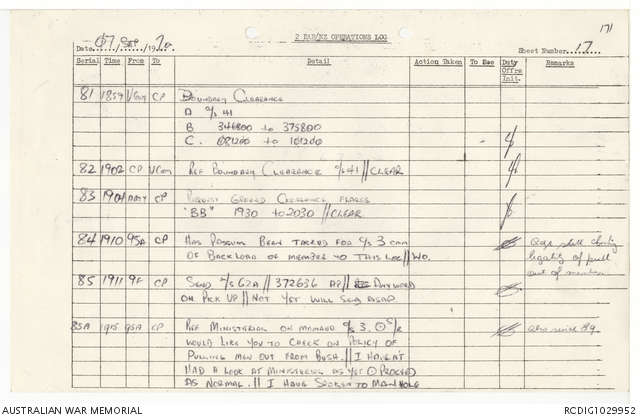 171
2 RAR/NZ OPERATIONS LOG
Date 07 Sep /1970
Sheet Number 17
Serial Time From To Detail Action Taken To Sec Duty Offrs Init. Remarks
81 1859 CP BOUNDARY CLEARANCE
A C/S 41
B 346800 to 375800
C. 081200 to 101200
82 1902 CP REF BOUNDARY CLEARANCE C/S 41 // CLEAR
83 1904 CP REQUEST GROUND CLEARANCE FLARES
"BB" 1930 to 2030 // CLEAR
84 1910 95A CP HAS POSSUM BEEN TASKED FOR C/S 3
OF BACKLOAD OF MEMBER TO THIS LOC // NO.
legality of pull
out of member
85 1911 9F CP SEND C/S 62A // 372636 AP // DAYWORD
ON PICK UP // NOT YET WILL SEND ASAP
85A 1915 95A CP REF MINISTERIAL ON C/S 3.
WOULD LIKE YOU TO CHECK ON POLICY OF
PULLING MEN OUT FROM BUSH. // I HAVEN'T
HAD A LOOK AT MINISTERIAL AS YET PROCEED
AS NORMAL. // I HAVE SPOKEN TO MANHOLE
AUSTRALIAN WAR MEMORIAL
RCDIG1029952